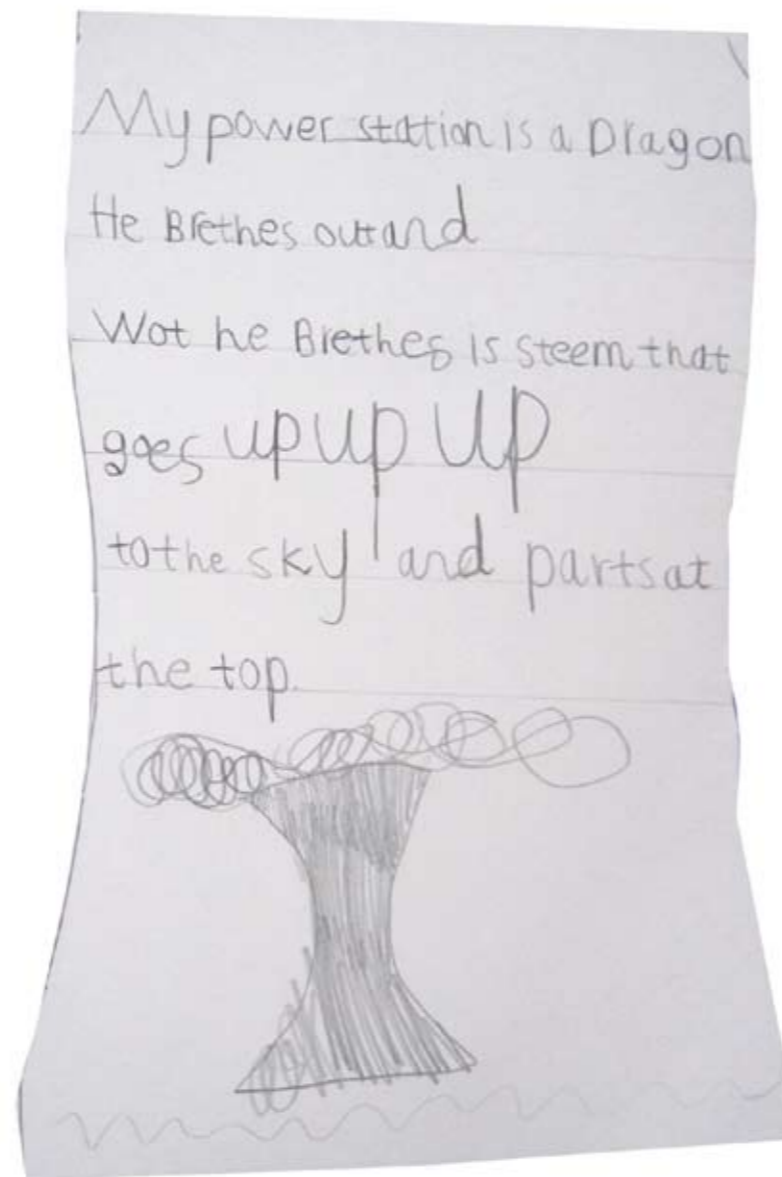 My power station is a Dragon
He Brethes out and
Wot he Brethes is steem that
goes up up up
to the sky and parts at
the top.